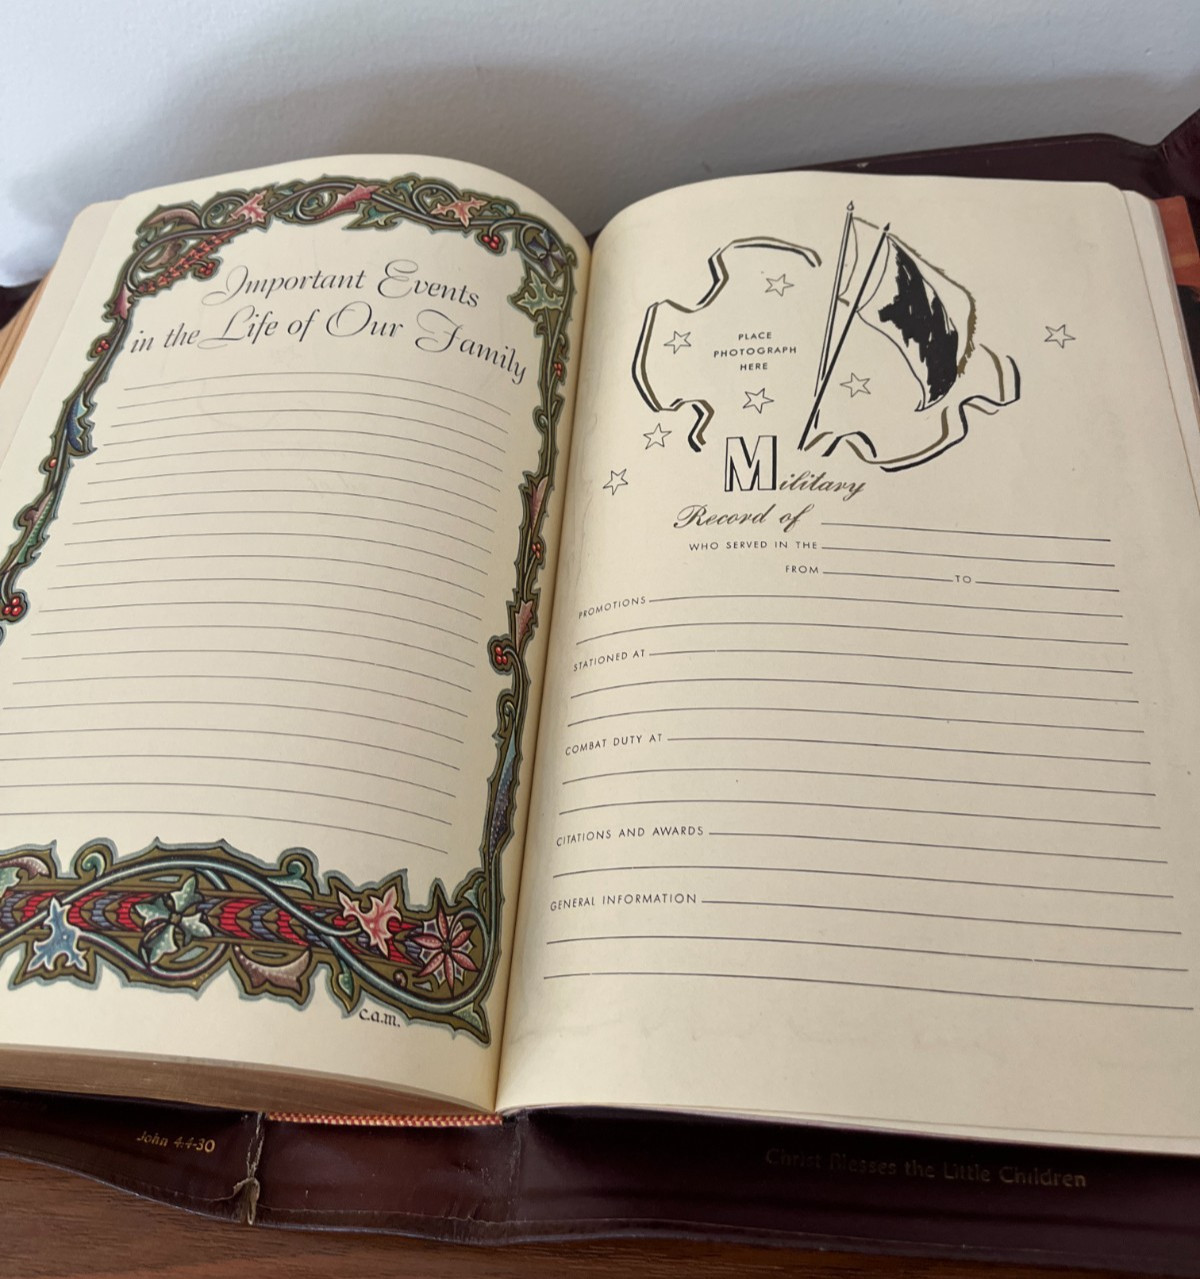 Important Events
in the Life of Our Family
c.a.m.
PLACE
PHOTOGRAPH
HERE
Military
Record of
WHO SERVED IN THE
FROM TO
PROMOTIONS
STATIONED AT
COMBAT DUTY AT
CITATIONS AND AWARDS
GENERAL INFORMATION
John 4:4-30
Christ Blesses the Little Children